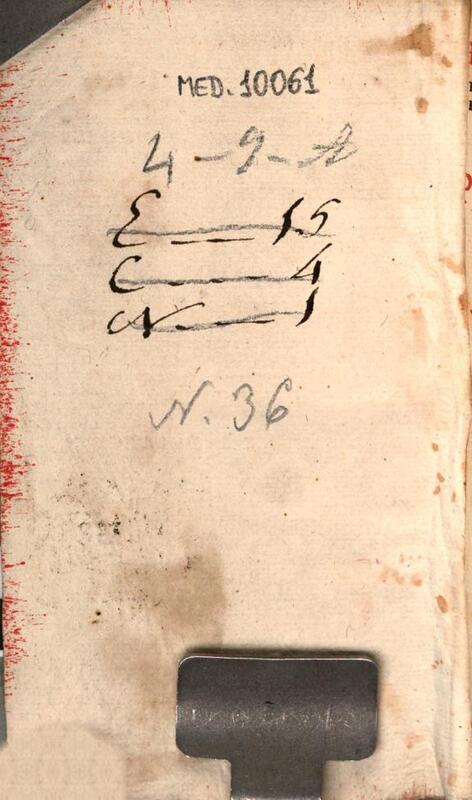 MED. 10061
4-9-A
E — 15
C — 4
N — 1
N. 36